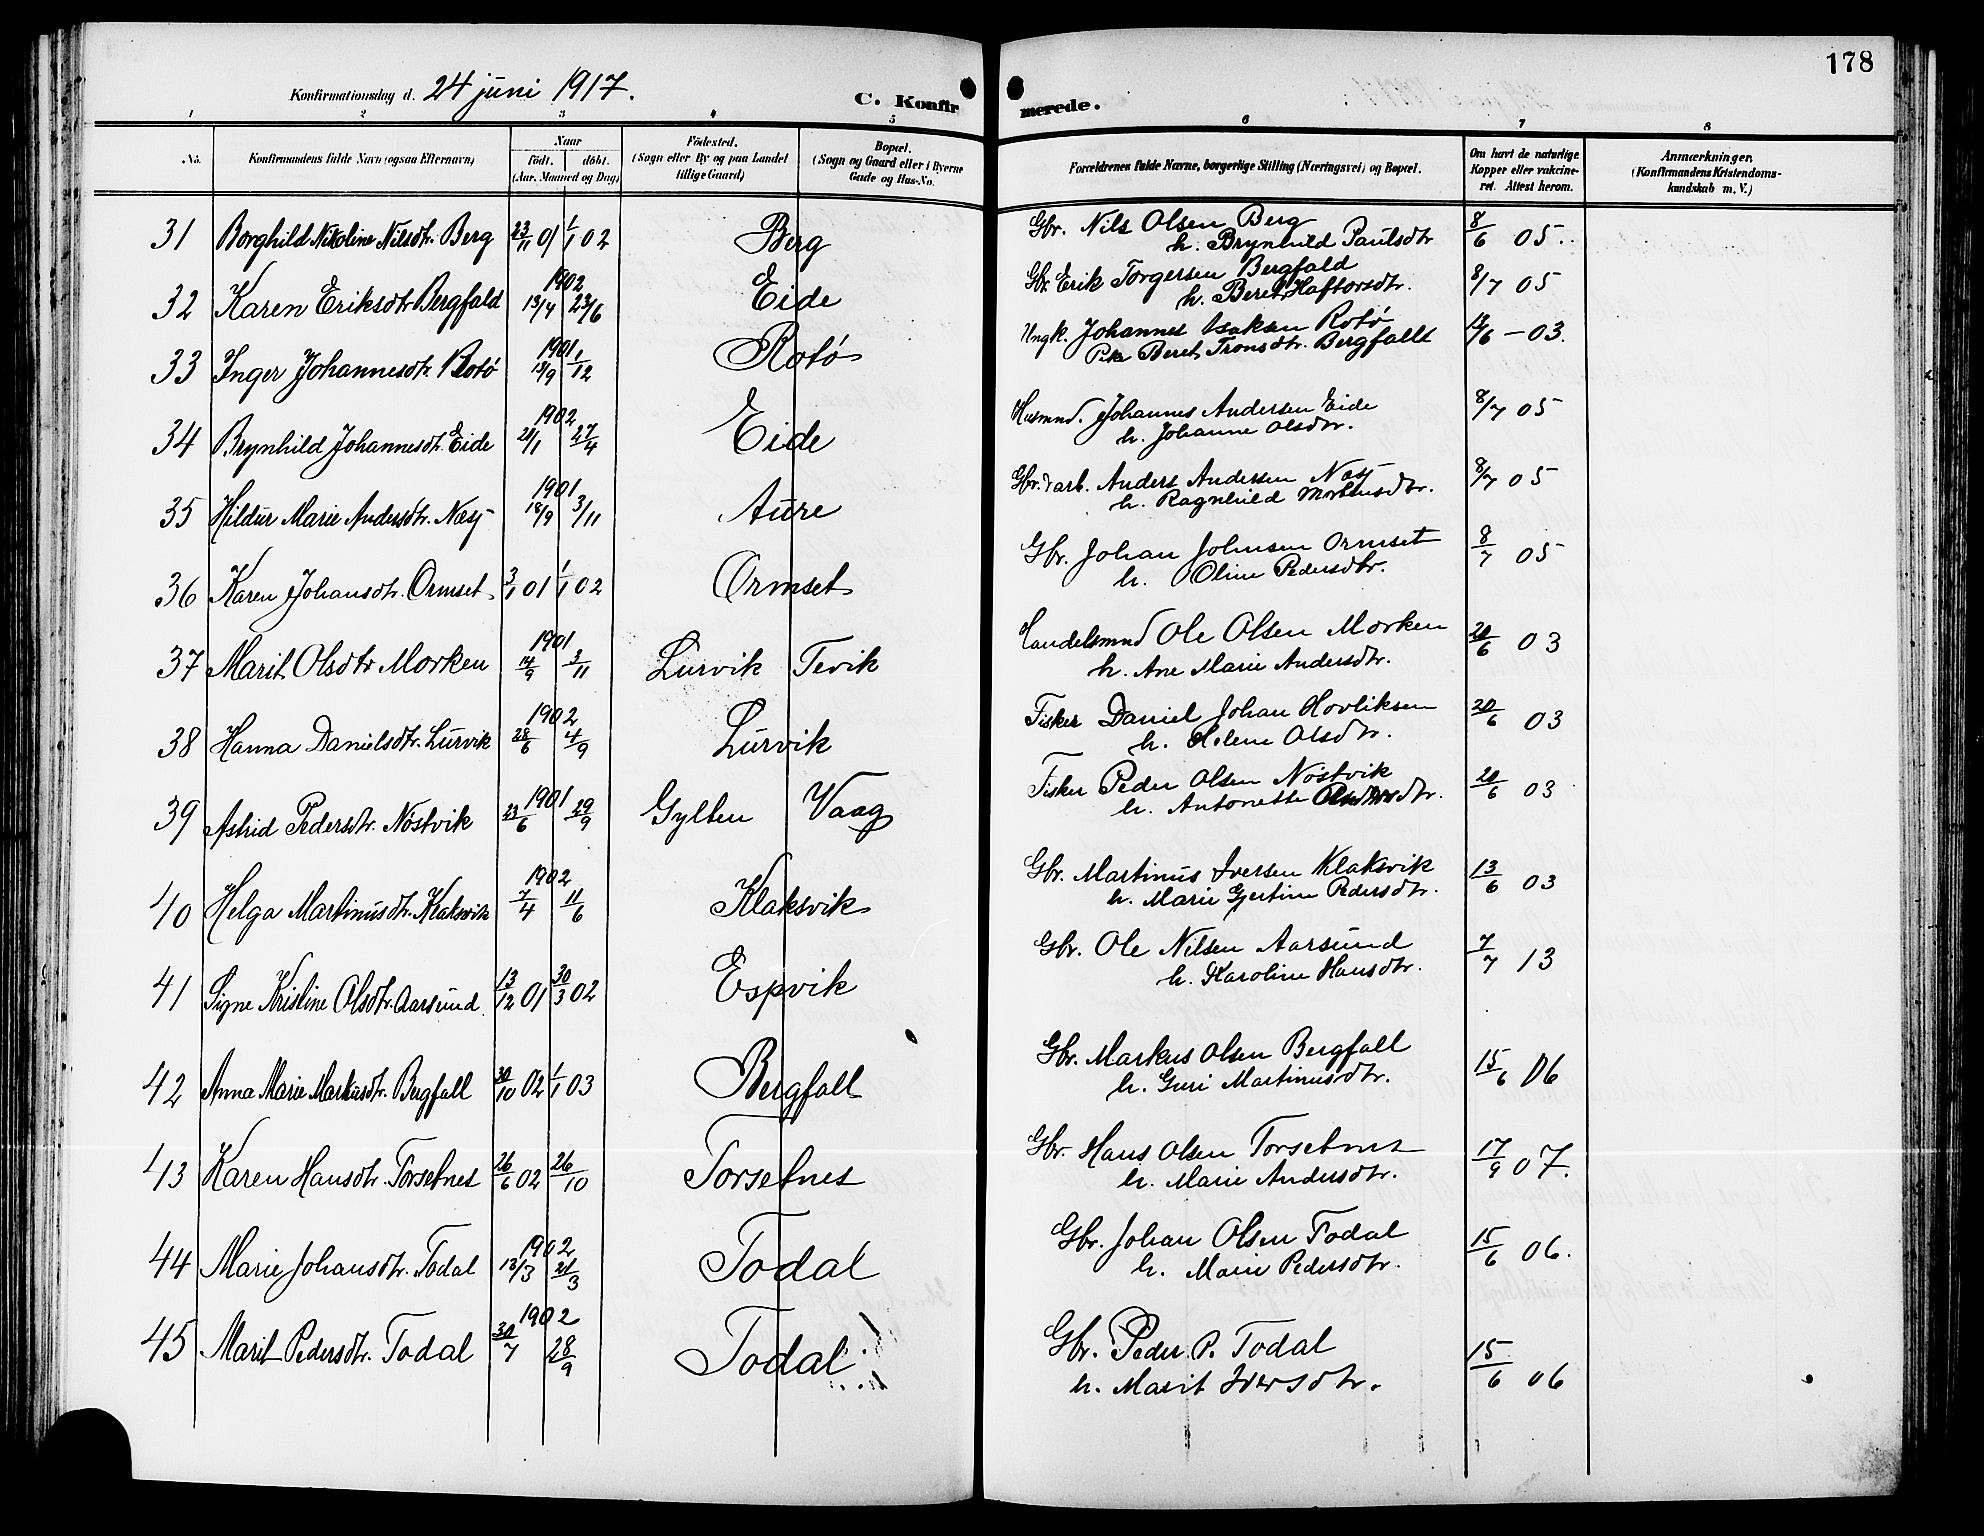 178
Konfirmationsdag d. 24 juni 1917.
C. Konfirmerede.
1 2 3 4 5 6 7 8
No.
Konfirmandens fulde Navn (ogsaa Efternavn)
Naar
födt. döbt.
(Aar, Maaned og Dag)
Födested.
(Sogn eller By og paa Landet
tillige Gaard)
Bopæl.
(Sogn og Gaard eller i Byerne
Gade og Hus-No.
Forældrenes fulde Navne, borgerlige Stilling (Næringsvei) og Bopæl.
Om havt de naturlige
Kopper eller vakcine-
ret. Attest herom.
Anmærkninger.
(Konfirmandens Kristendoms-
kundskab m. V.)
31 Borghild Nikoline Nilsdtr. Berg 23/11 01 1/1 02 Berg Gbr. Nils Olsen Berg 8/6 05.
h. Brynhild Paulsdtr
32 Karen Eriksdtr Bergfald 1902 13/4 23/6 Eide Gbr. Erik Torgersen Bergfald 8/7 05
h. Beret Haftorsdtr.
33 Inger Johannesdtr. Rotø 1901 13/9 1/12 Rotø Ungk. Johannes Isaksen Rotø 03.
Pike Beret Tronsdtr. Bergfallt
34 Brynhild Johannesdtr. Eide 1902 21/1 27/4 Eide Husmnd. Johannes Andersen Eide 8/7 05
h. Johanne Olsdtr.
35 Hildur Marie Andersdtr. Næss 1901 18/9 3/11 Aure Gbr. & arb. Anders Andersen Næss 8/7 05
h. Ragnhild Mortensdtr.
36 Karen Johansdtr. Ormset 3/1 01 1/1 02 Ormset Gbr. Johan Johnsen Ormset 8/7 05
h. Oline Pedersdtr.
37 Marit Olsdtr Morken 1901 14/9 3/11 Lurvik Tevik Handelsmnd Ole Olsen Morken 20/6 03
h. Ane Marie Andersdtr.
38 Hanna Danielsdtr. Lurvik 1902 28/6 4/9 Lurvik Fisker Daniel Johan Hovliksen 20/6 03
h. Helene Olsdtr.
39 Astrid Pedersdtr. Nøstvik 1901 23/6 29/9 Gylten Vaag Fisker Peder Olsen Nøstvik 20/6 03
h. Antonette
40 Helga Martinusdtr. Klaksvik 1902 7/4 11/6 Klaksvik Gbr. Martinus Iversen Klaksvik 13/6 03
h. Marie Gjertine Pedersdtr.
41 Signe Kristine Olsdtr. Aarsund 13/12 01 30/3 02 Espvik Gbr. Ole Nilsen Aarsund 7/7 13
h. Karoline Hansdtr.
42 Anna Marie Markusdtr. Bergfall 30/10 02 1/1 03 Bergfall Gbr. Markus Olsen Bergfall 15/6 06
h. Guri Martinusdtr.
43 Karen Hansdtr. Torsetnes 26/6 02 26/10 Torsetnes Gbr. Hans Olsen Torsetnes 17/9 07.
h. Marie Andersdtr.
44 Marie Johansdtr. Todal 1902 13/3 21/3 Todal Gbr. Johan Olsen Todal 15/6 06.
h. Marie Pedersdtr.
45 Marit Pedersdtr. Todal 1902 30/7 28/9 Todal Gbr. Peder P. Todal 15/6 06
h. Marit Iversdtr.